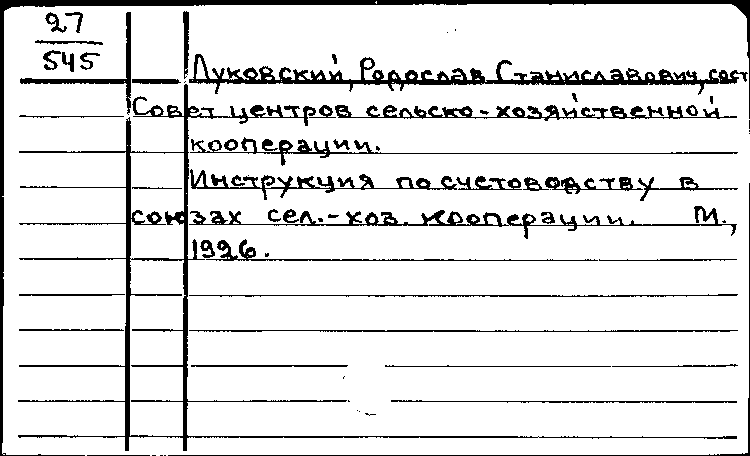 27
545
Луковский, Родослав Станиславович, сост
Совет центров сельско-хозяйственной
кооперации.
Инструкция по счетоводству в
союзах сел.-хоз. кооперации. М.,
1926.